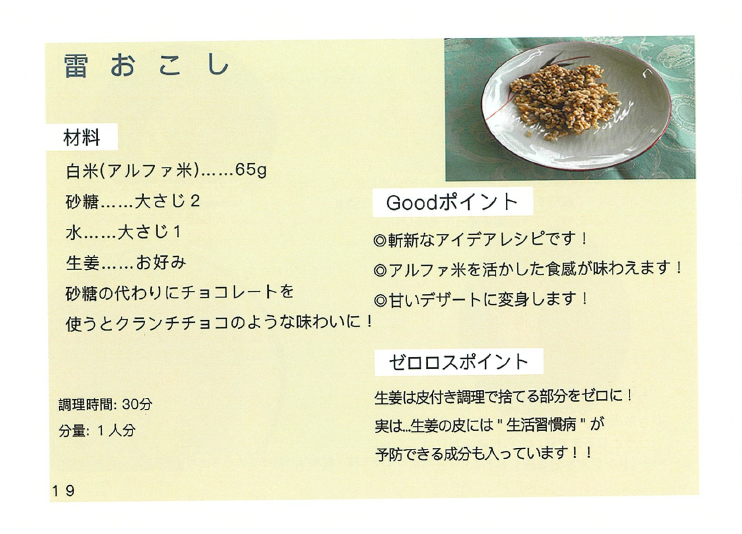 雷おこし
材料
白米(アルファ米)……65g
砂糖……大さじ2
水……大さじ1
生姜……お好み
砂糖の代わりにチョコレートを
使うとクランチチョコのような味わいに！
調理時間: 30分
分量: 1人分
Goodポイント
◎斬新なアイデアレシピです！
◎アルファ米を活かした食感が味わえます！
◎甘いデザートに変身します！
ゼロロスポイント
生姜は皮付き調理で捨てる部分をゼロに！
実は...生姜の皮には"生活習慣病"が
予防できる成分も入っています！！
19